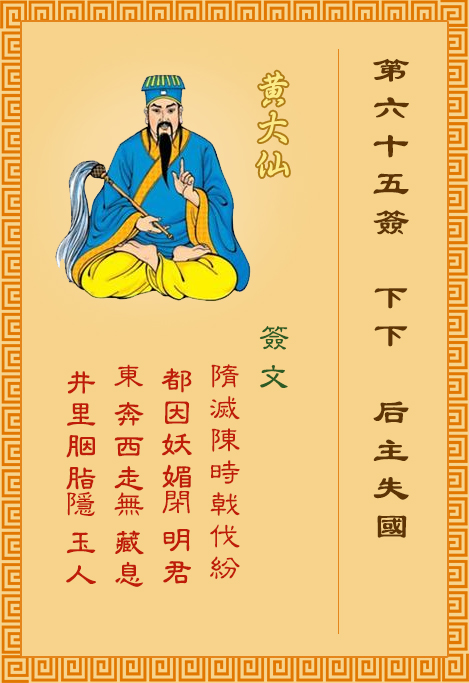 第六十五簽 下下 后主失國
黄大仙
簽文
隋滅陳時戟伐紛
都因妖媚閉明君
東奔西走無藏息
井里胭脂隱玉人